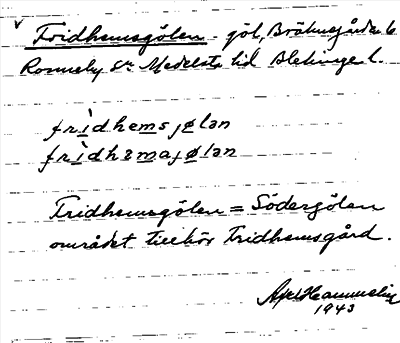 Fridhemsgölen - göl, Bräknegården 6
Ronneby sn Medelsta hd Blekinge l.
frìdhems jølan
frìdhəmaj ølan
Fridhemsgölen = Södergölen
området tillhör Fridhemsgård.
1943